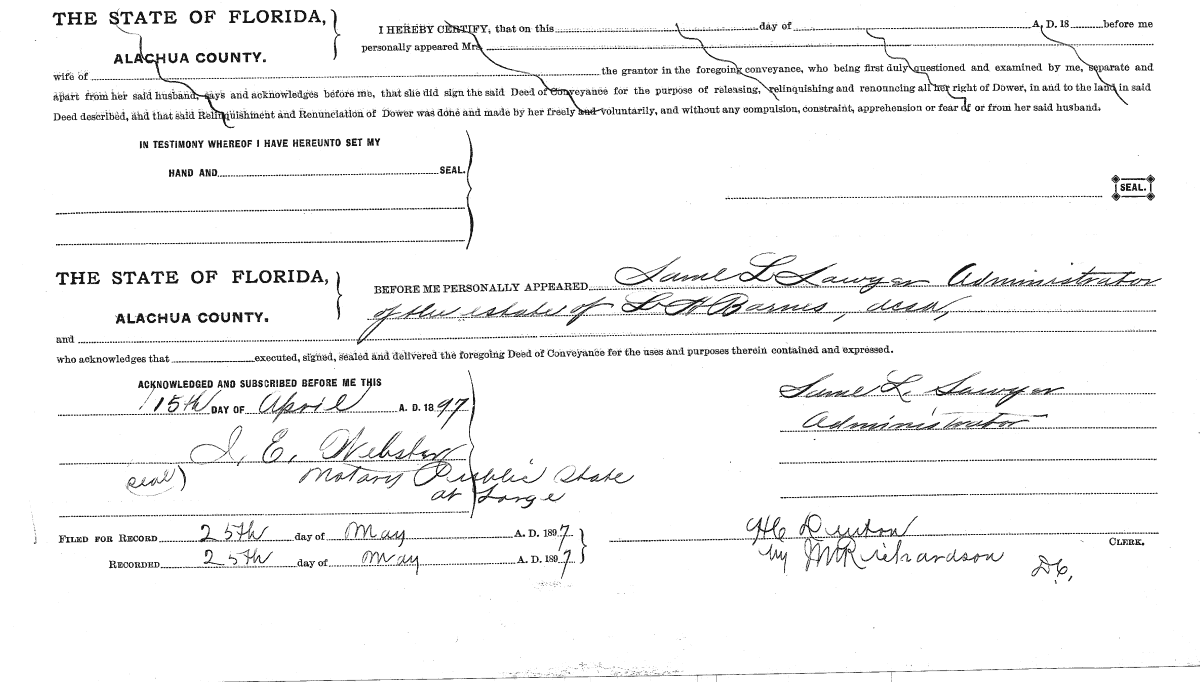 THE STATE OF FLORIDA,
ALACHUA COUNTY.
I HEREBY CERTIFY, that on this day of A. D. 18 before me
personally appeared Mrs.
wife of the grantor in the foregoing conveyance, who being first duly questioned and examined by me, separate and
apart from her said husband, says and acknowledges before me, that she did sign the said Deed of Conveyance for the purpose of releasing, relinquishing and renouncing all her right of Dower, in and to the land in said
Deed described, and that said Relinquishment and Renunciation of Dower was done and made by her freely and voluntarily, and without any compulsion, constraint, apprehension or fear of or from her said husband.
IN TESTIMONY WHEREOF I HAVE HEREUNTO SET MY
HAND AND SEAL.
SEAL.
THE STATE OF FLORIDA,
ALACHUA COUNTY.
BEFORE ME PERSONALLY APPEARED Saml L Sawyer Administrator
of the estate of L H Barnes, decd,
and
who acknowledges that executed, signed, sealed and delivered the foregoing Deed of Conveyance for the uses and purposes therein contained and expressed.
ACKNOWLEDGED AND SUBSCRIBED BEFORE ME THIS
15th DAY OF April A. D. 1897
I. E. Webster
seal) Notary Public State
at Large
Saml L. Sawyer
Administrator
FILED FOR RECORD 25th day of May A. D. 1897
RECORDED 25th day of May A. D. 1897
HC Denton
CLERK.
by Richardson DC,